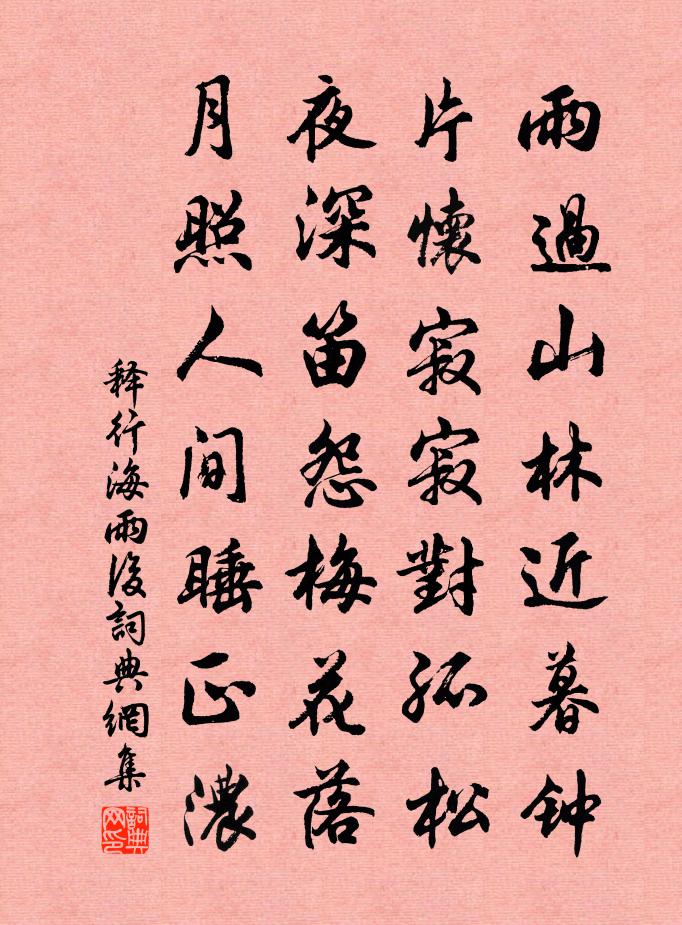 雨過山林近暮钟
片懷寂寂對孤松
夜深笛怨梅花落
月照人间睡正濃
释行海雨後詞典網集
詞典网印